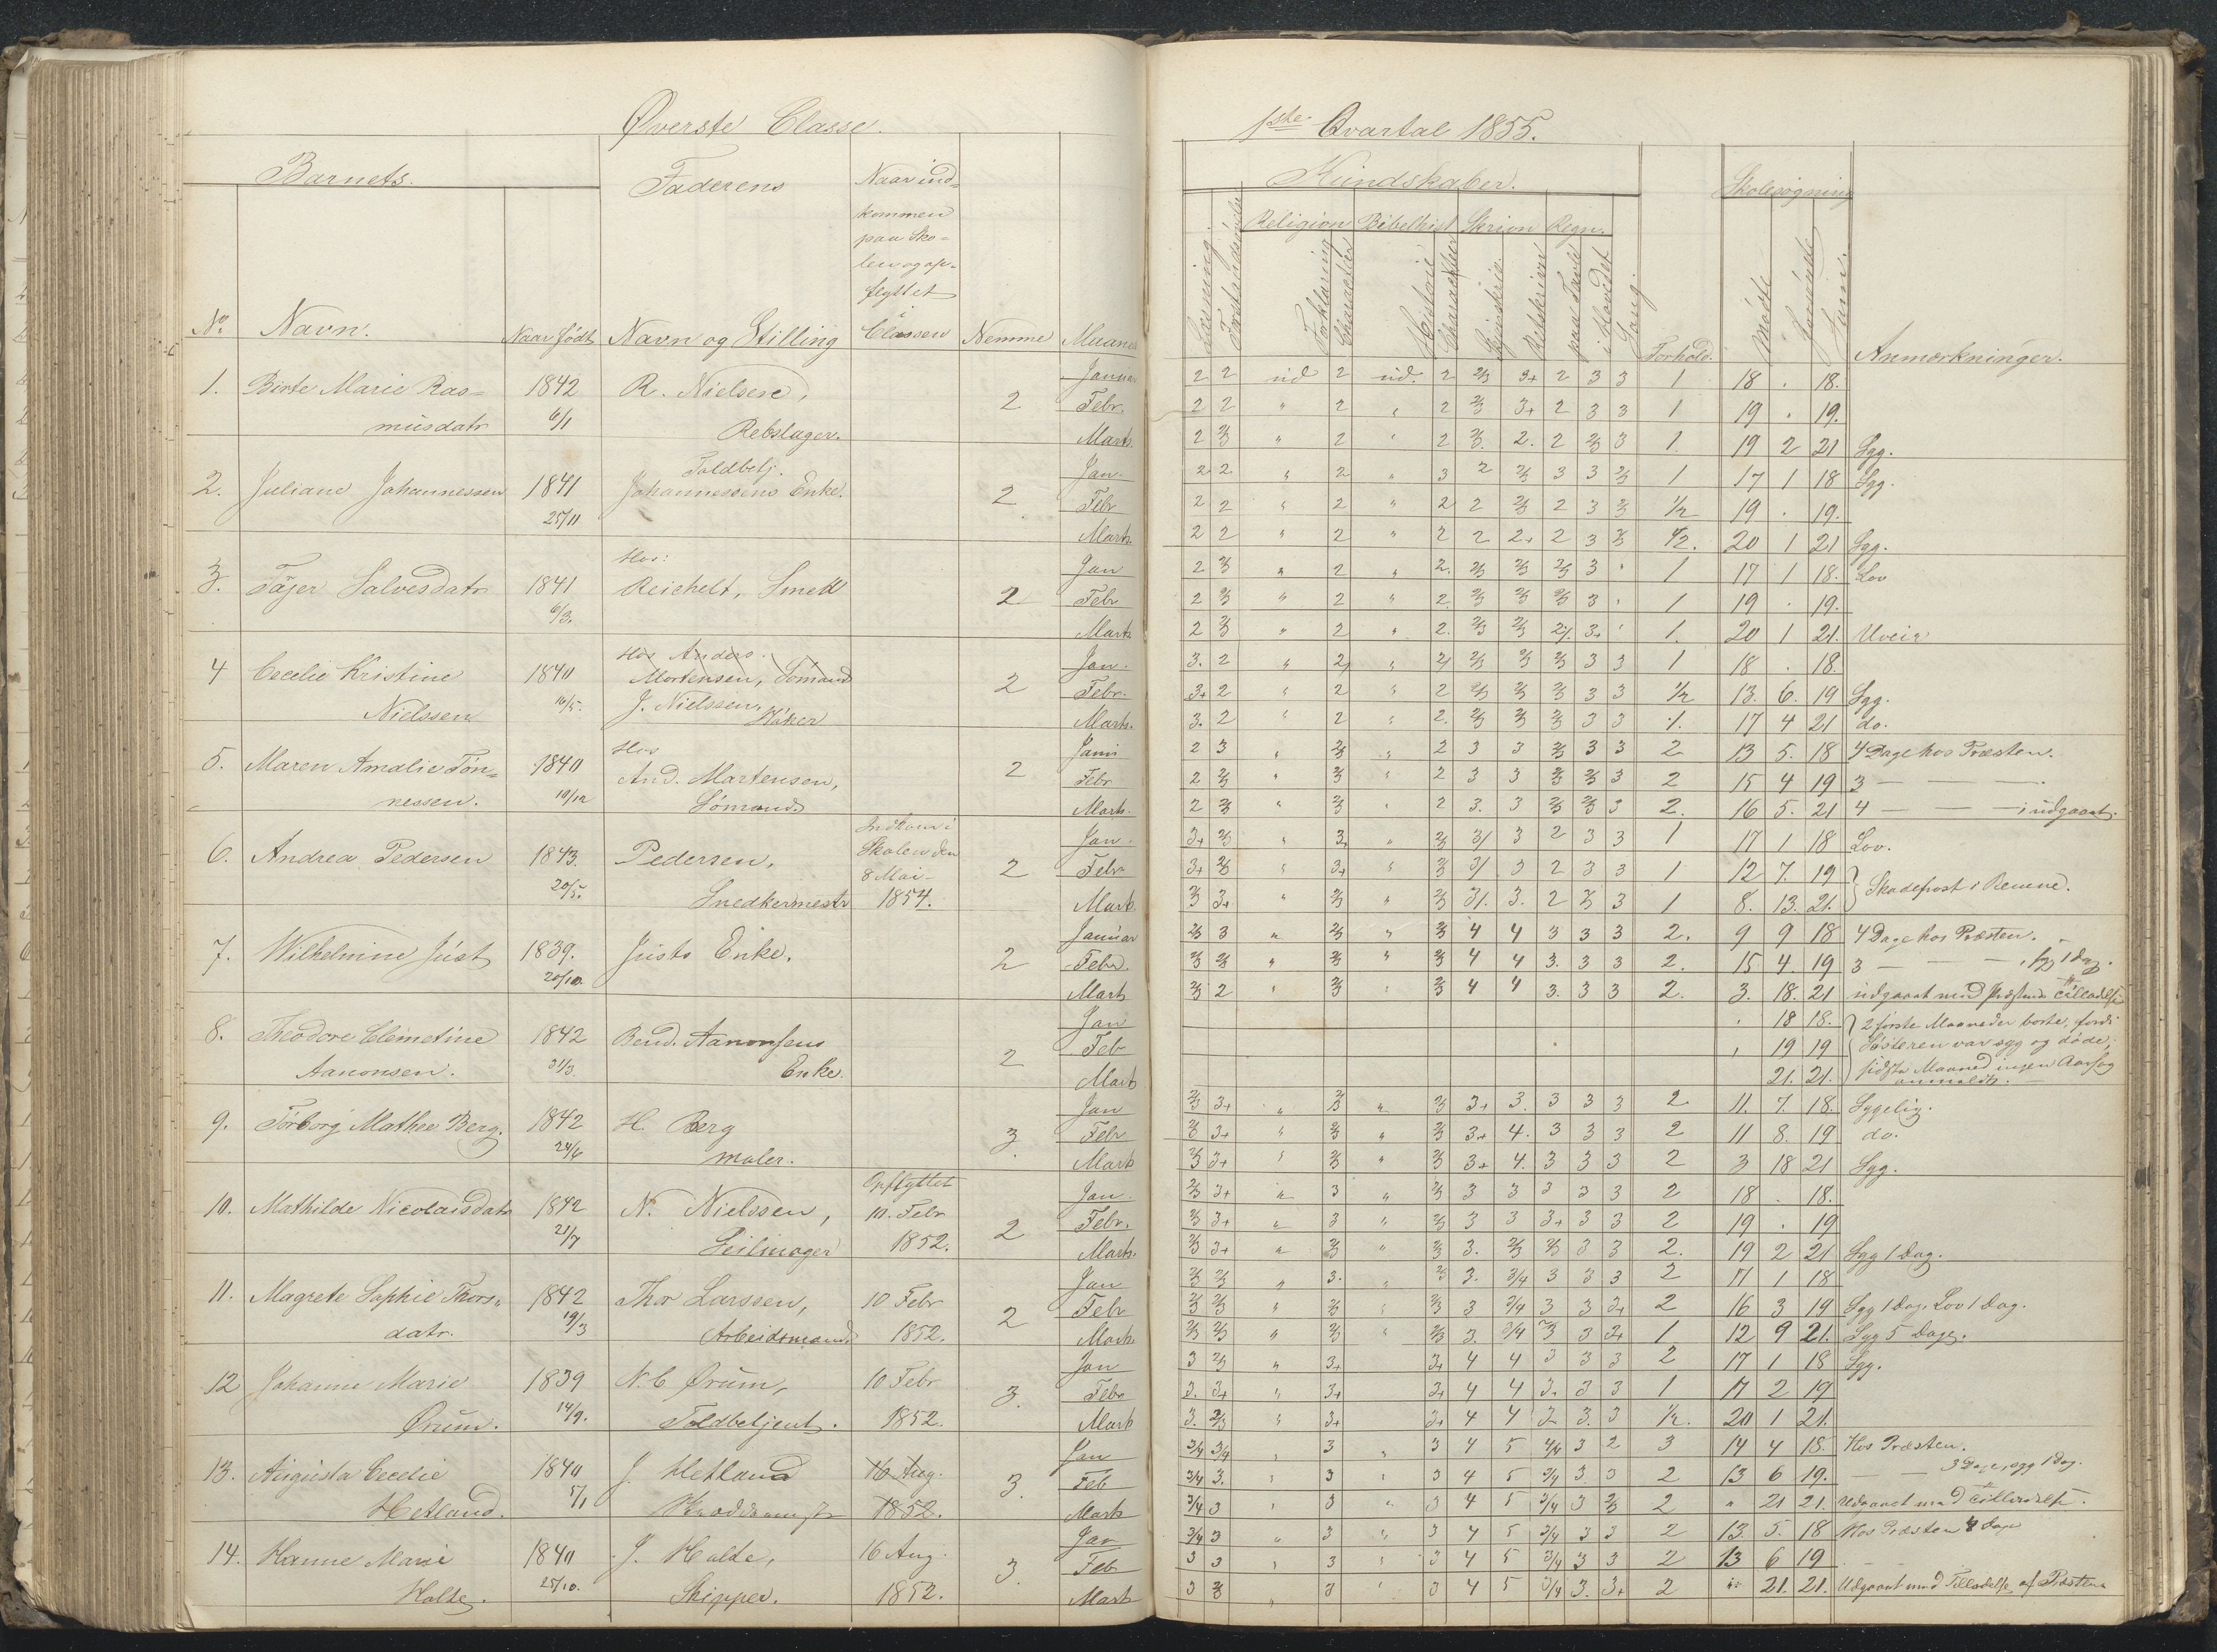 Øverste Classe.
1ste Qvartal 1855.
Barnets.
Faderens
Naar ind-
kommen
paa Sko-
len og op-
flyttet
Classen
No. Navn. Naar født Navn og Stilling Nemme Maaned
Kundskaber.
Skolesøgning
Religion Bibelhist Skrivn Regn.
Læsning Forstandsøvelse Forklaring Character Historie Character paa Tavle i Hovedet Sang. Forhold. Mødte Forsømte Sum. Anmærkninger.
1. Birte Marie Ras- 1842 R. Nielsen, Januar 2 2 ud 2 ud. 2 2/3 3+ 2 3 3 1 18 . 18.
musdatr 6/1 Rebslager. 2 Febr. 2 2 " 2 " 2 2/3 3+ 2 3 3 1 19 . 19.
Marts 2 2/3 " 2 " 2 2/3. 2. 2 2/3 3 1. 19 2 21 Syg.
Toldbetj.
2. Juliane Johannessen 1841 Johannessens Enke. 2 Jan. 2 2 " 2 " 3 2 2/3 3 3 2/3 1 17 1 18 Syg.
25/11 Febr 2 2 " 2 " 2 2 2/3 2 3 2/3 1/2 19 . 19.
Marts. 2 2 " 2 " 2 2 2+ 2 3 2/3 1/2. 20 1 21 Syg.
Hos:
3. Tajer Salvesdatr 1841 Reichelt, Smed 2 Jan 2 2/3 " 2 " 2. 2/3 2/3 2/3 3 " 1 17 1 18. Lov
6/3. Febr 2 2/3 " 2 " 2 2/3 2/3 2/3 3 " 1 19 . 19.
Marts 2 2/3 " 2 " 2. 2/3 2/3 3+ " 1. 20 1 21. Uveir
Hos Anders
4 Cecelie Kristine 1840 Mortensen, Sømand 2 Jan. 3. 2 " 2 " 2 2/3 2/3 2/3 3 3 1 18 . 18.
Nielssen 16/5. J. Nielssen, Høker Febr. 3+ 2 " 2 " 2 2/3 2/3 2/3 3 3 1/2 13. 6. 19 Syg.
Marts. 3. 2 " 2 " 2. 2/3 2/3 2/3 3 3 17 4 21 do.
Hos
5. Maren Amalie Tøn- 1840 And. Martensen, 2 Janu 2 3 " 2/3 " 2 3 3 2/3 3 3 2 13 5. 18 4 Dage hos Præsten.
nessen. 10/12 Sømand. Febr 2 2/3 " 2/3 " 2 3 3 2/3 2/3 3 2 15 4 19 3 — — —
Marts. 2 2/3 " 2/3 " 2 3. 3 2/3 2/3 3 2. 16 5. 21 4 — — — udgaaet.
Indkom i
Skolen den
8 Mai
1854.
6. Andrea Pedersen 1843. Pedersen, 2 Jan. 3+ 2/3 " 3+ " 2/3 3/ 3 2 3 3 1 17 1 18 Lov.
20/5. Snedkermestr Febr 3+ 2/3 " 3+ " 2/3 3/ 3 2 3 3 1 12 7. 19
Mart. 2/3 3+ " 2/3 " 2/3 3/. 3. 2 2/3 3 1 8. 13. 21. Skadefrost i Benene.
7. Wilhelmine Just 1839. Justs Enke. 2 Januar 2/3 3 " 2/3 " 2/3 4 4 3 3 3 2. 9 9 18 4 Dage hos Præsten.
20/10. Febr. 2/3 2/3 " 2/3 " 2/3 4 4 3. 3 3 2. 15. 4. 19 3 — — — , syg 1 Dag.
Marts 2/3 2 " 2/3 " 2/3 4 4 3. 3 3 2. 3. 18. 21 udgaaet med Præstens Tilladelse
8. Theodore Clemetine 1842 Bend. Aanonsens 2 Jan . 18 18. 2 første Maaneder borte, fordi
Aanonsen. 31/3. Enke. Feb . 19 19 Søsteren var syg og døde;
Mart 21. 21. sidste Maaned ingen Aarsag
anmeldt.
9. Torborg Mathea Berg. 1842 H. Berg 3. Jan 2/3 3+ " 2/3 " 2/3 3+ 3. 3 3 3 2. 11. 7. 18. Sygelig.
24/6 maler. Febr 2/3 3+ " 2/3 " 2/3 3+ 4. 3 3 3 2 11 8. 19 do.
Marts 2/3 3+ " 2/3 " 2/3 3+ 4. 3 3 3 2 3 18 21 Syg.
Opflyttet
10. Mathilde Nicolaisdatr 1842 N. Nielssen, 10. Febr 2 Jan. 2/3 3+ " 3 " 2/3 3 3 3 3 3 2 18 . 18.
21/7 Seilmager 1852. Febr. 2/3 3+ " 3 " 2/3 3 3 3+ 3 3 2 19 . 19
Marts. 2/3 3+ " 2/3 " 2/3 3. 2/3 2/3 3 3 2. 19 2 21 Syg 1 Dag.
11. Magrete Sophie Thors- 1842 Thor Larssen, 10 Febr 2 Jan 2/3 2/3 " 3. " 2/3 3. 3/4 3 3 3 2 17 1 18
datr. 19/3 Arbeidsmand. 1852. Febr 2/3 2/3 " 2/3 " 2/3 3 3/4 3 3 3+ 2 16 3 19 Syg 1 Dag. Lov 1 Dag.
Marts 2/3 2/3 " 2/3 " 2/3 3. 3/4 3 3 3+ 1 12 9 21. Syg 5 Dage.
12 Johanne Marie 1839 N. C Ørum, 10 Febr 3. Jan 3 2/3 " 3+ 3+ 4 4 3 3 3 2 17 1 18 Syg.
Ørum. 14/9. Toldbetjent. 1852. Febr 3. 3+ " 3+ 3+ 4 4 3. 3 3 1 17 2 19
Mart 3. 2/3 " 3+ 3+ 4 4 3 3. 3 1/2. 20 1 21.
13. Augusta Cecelie 1840 J. Hetland 16 Aug. 3. Jan 3/4 3/4 " 3 " 3 4 5 3/4 3 2 3 14 4 18. Hos Præsten.
Hetland. 5/1 1852. Feb 3/4 3. " 3 " 3 4 5 3/4 3. 3 2 13 6 19. — — 3 Dage, syg 1 Dag.
Marts 3/4 3 " 3 " 3 4 5 3/4 3 2/3 2 " 21 21. Udgaaet med Tilladelse.
14. Hanne Marie 1840 J. Holte, 16 Aug. 3. Jan 3/4 3 " 3 " 3 4 5 3/4 3 3 2 13. 5. 18 Hos Præsten 4 Dage
Holte. 25/10. Skipper. 1852. Feb 3 3 " 3 " 3 4 5 3/4 3 3 2 13 6 19
Mart 3 2/3 " 3 " 3 4 5 3/4 3. 3+ 2 " 21. 21. Udgaaet med Tilladelse af Præsten